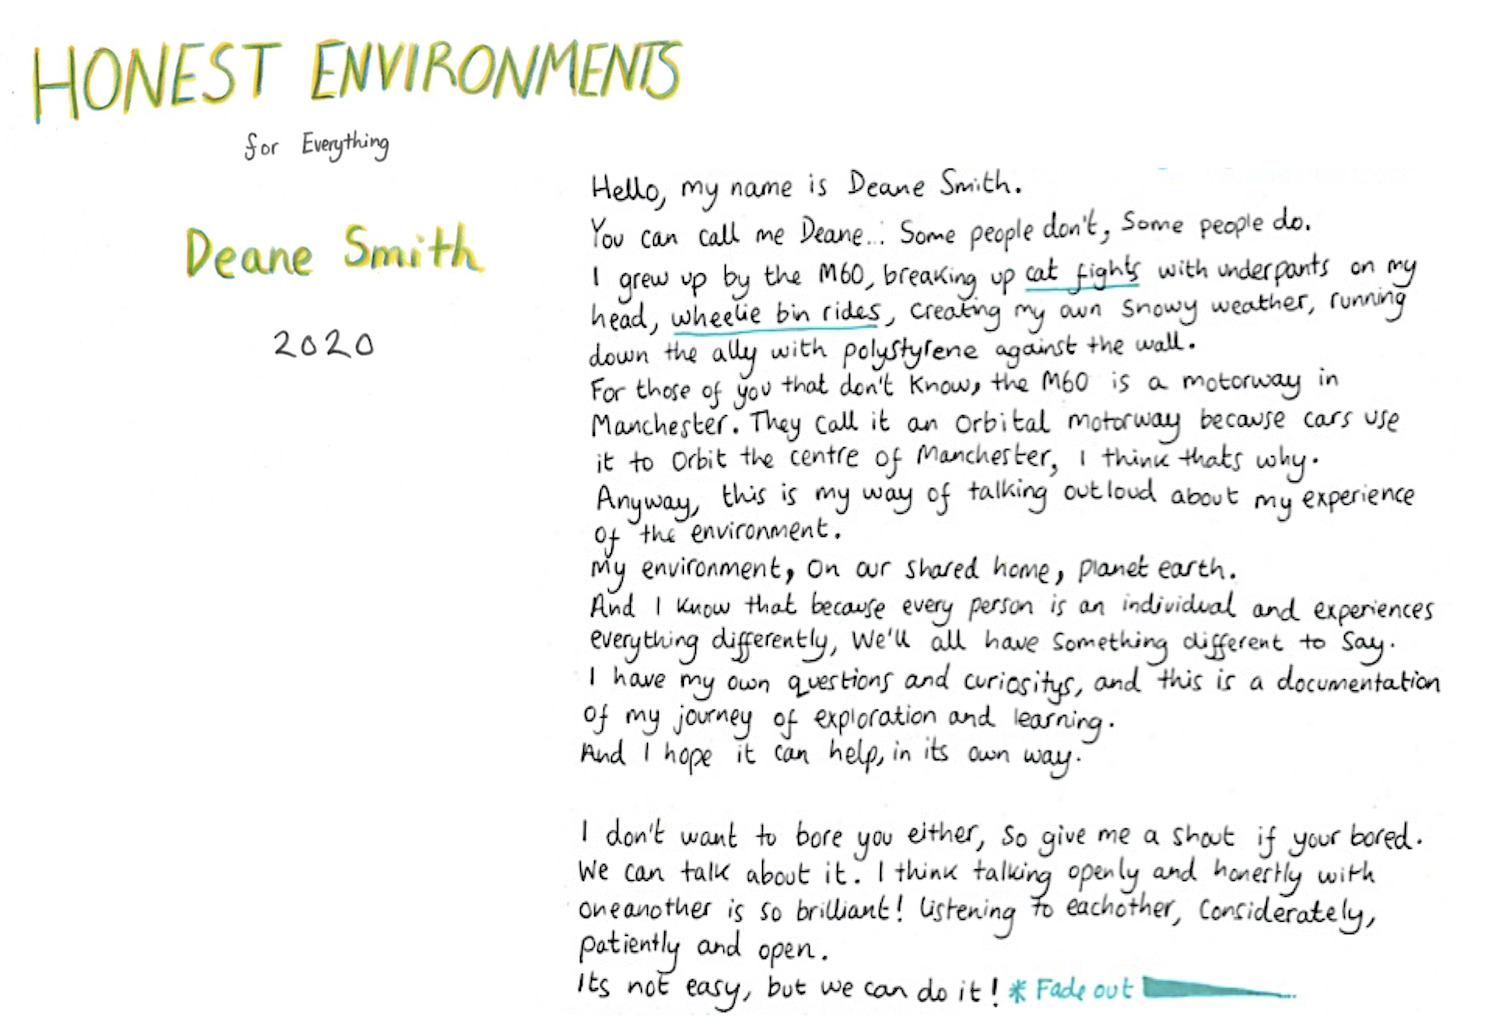 HONEST ENVIRONMENTS
for Everything
Deane Smith
2020
Hello, my name is Deane Smith.
You can call me Deane... Some people don't, Some people do.
I grew up by the M60, breaking up cat fights with underpants on my
head, wheelie bin rides, creating my own snowy weather, running
down the ally with polystyrene against the wall.
For those of you that don't know, the M60 is a motorway in
Manchester. They call it an orbital motorway because cars use
it to orbit the centre of Manchester, I think thats why.
Anyway, this is my way of talking outloud about my experience
of the environment.
My environment, on our shared home, planet earth.
And I know that because every person is an individual and experiences
everything differently, We'll all have something different to say.
I have my own questions and curiositys, and this is a documentation
of my journey of exploration and learning.
And I hope it can help, in its own way.
I don't want to bore you either, so give me a shout if your bored.
We can talk about it. I think talking openly and honestly with
oneanother is so brilliant! Listening to eachother, Considerately,
patiently and open.
Its not easy, but we can do it! * Fade out